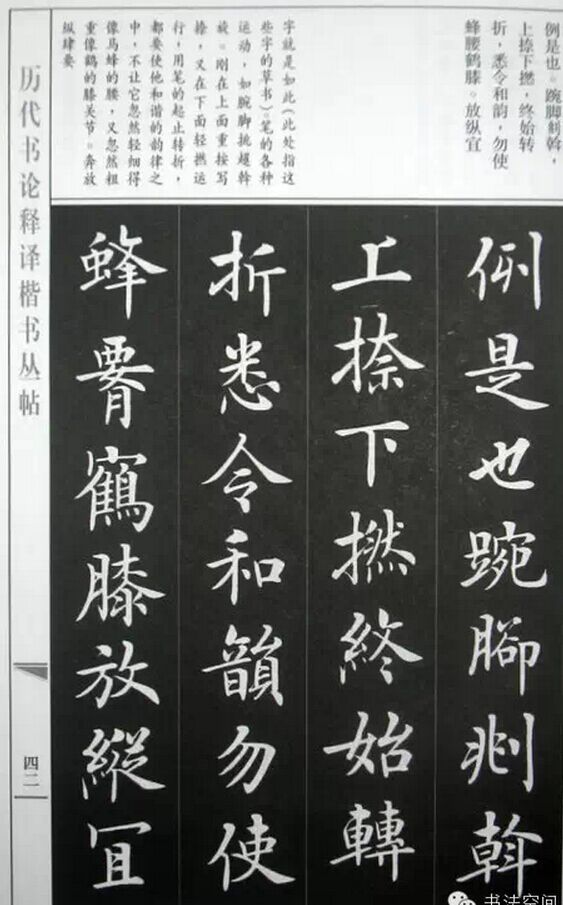 例是也。踠脚斡，
上捺下撚，终始转
折，悉令和韵，勿使
蜂腰鹤膝。放纵宜
字就是如此（此处指这
些字的草书）。笔的各种
运动，如腕脚挑趯斡
旋。刚在上面重按写
捺，又在下面轻撚运
行，用笔的起止转折，
都要使他和谐的韵律之
中，不让它忽然轻细得
像马蜂的腰，又忽然粗
重像鹤的膝关节。奔放
纵肆要
例是也踠腳斡
上捺下撚終始轉
折悉令和韻勿使
蜂腰鶴膝放縱宜
历代书论释译楷书丛帖
四二
书法空间